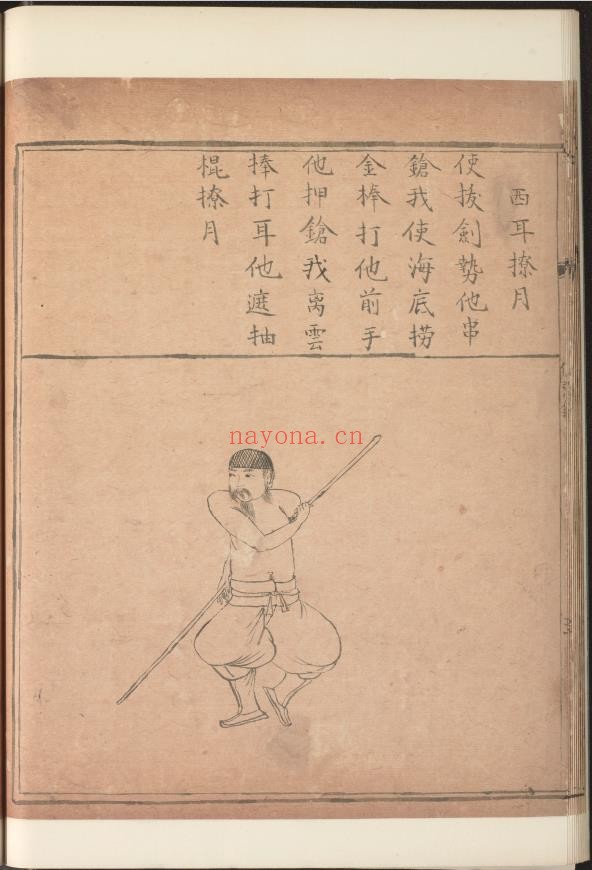 西耳撩月
使拔劍勢他串
鎗我使海底撈
金棒打他前手
他押鎗我离雲
捧打耳他遮抽
棍撩月
nayona.cn